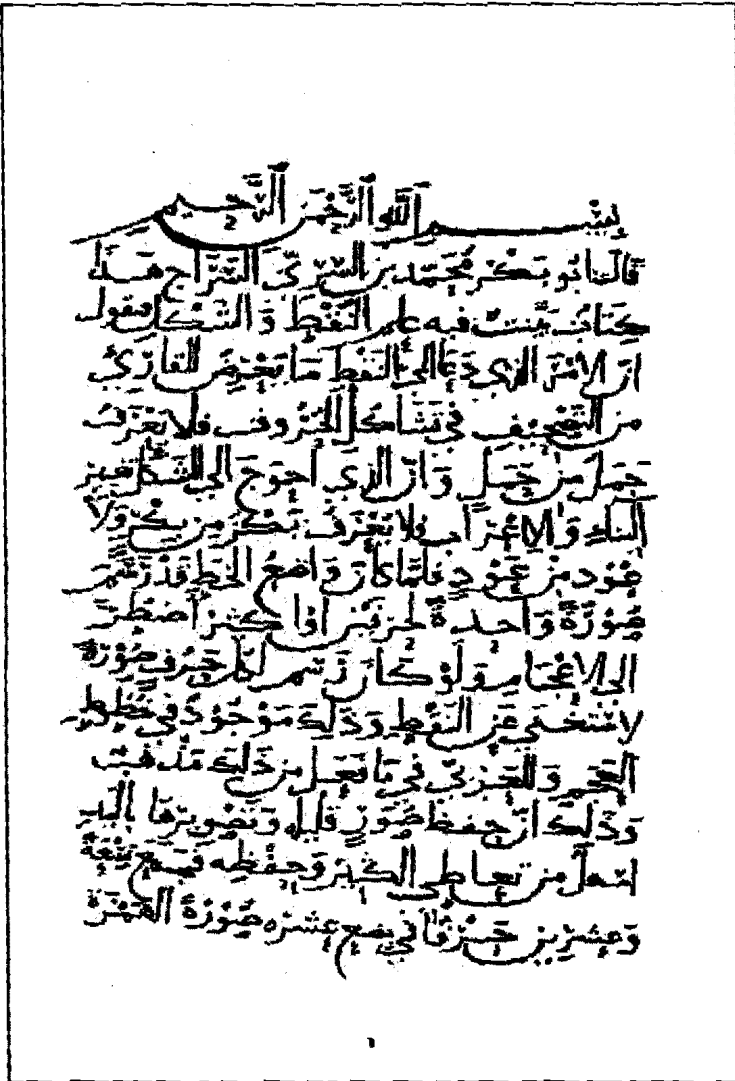 بسم الله الرحمن الرحيم
قال أبو بكر محمد بن السري السراج هذا
كتاب بينت فيه علم النقط والشكل فنقول
ان الامر الذي دعا الى النقط ما يعترض للقارئ
من التصحيف في تشاكل الحروف فلا يعرف
جمل من حمل وان الذي احوج الى الشكل تغير
البناء والاعراب فلا يعرف بكر من بكر ولا
من فلما كان واضع الخط قد رسم
صورة واحدة لحرفين او اكثر اضطر
الى الاعجام ولو كان رسم لكل حرف صورة
لاستغنى عن النقط وذلك موجود في خطوط
العجم وللعرب في ما تفعل من ذلك مذهب
وذلك ان حفظ صور قليله وتصويرها باليد
اسهل من تعاطي الكثير وحفظه فوضع تسعة
وعشرين حرفا في بضع عشره صورة الهمزة
١